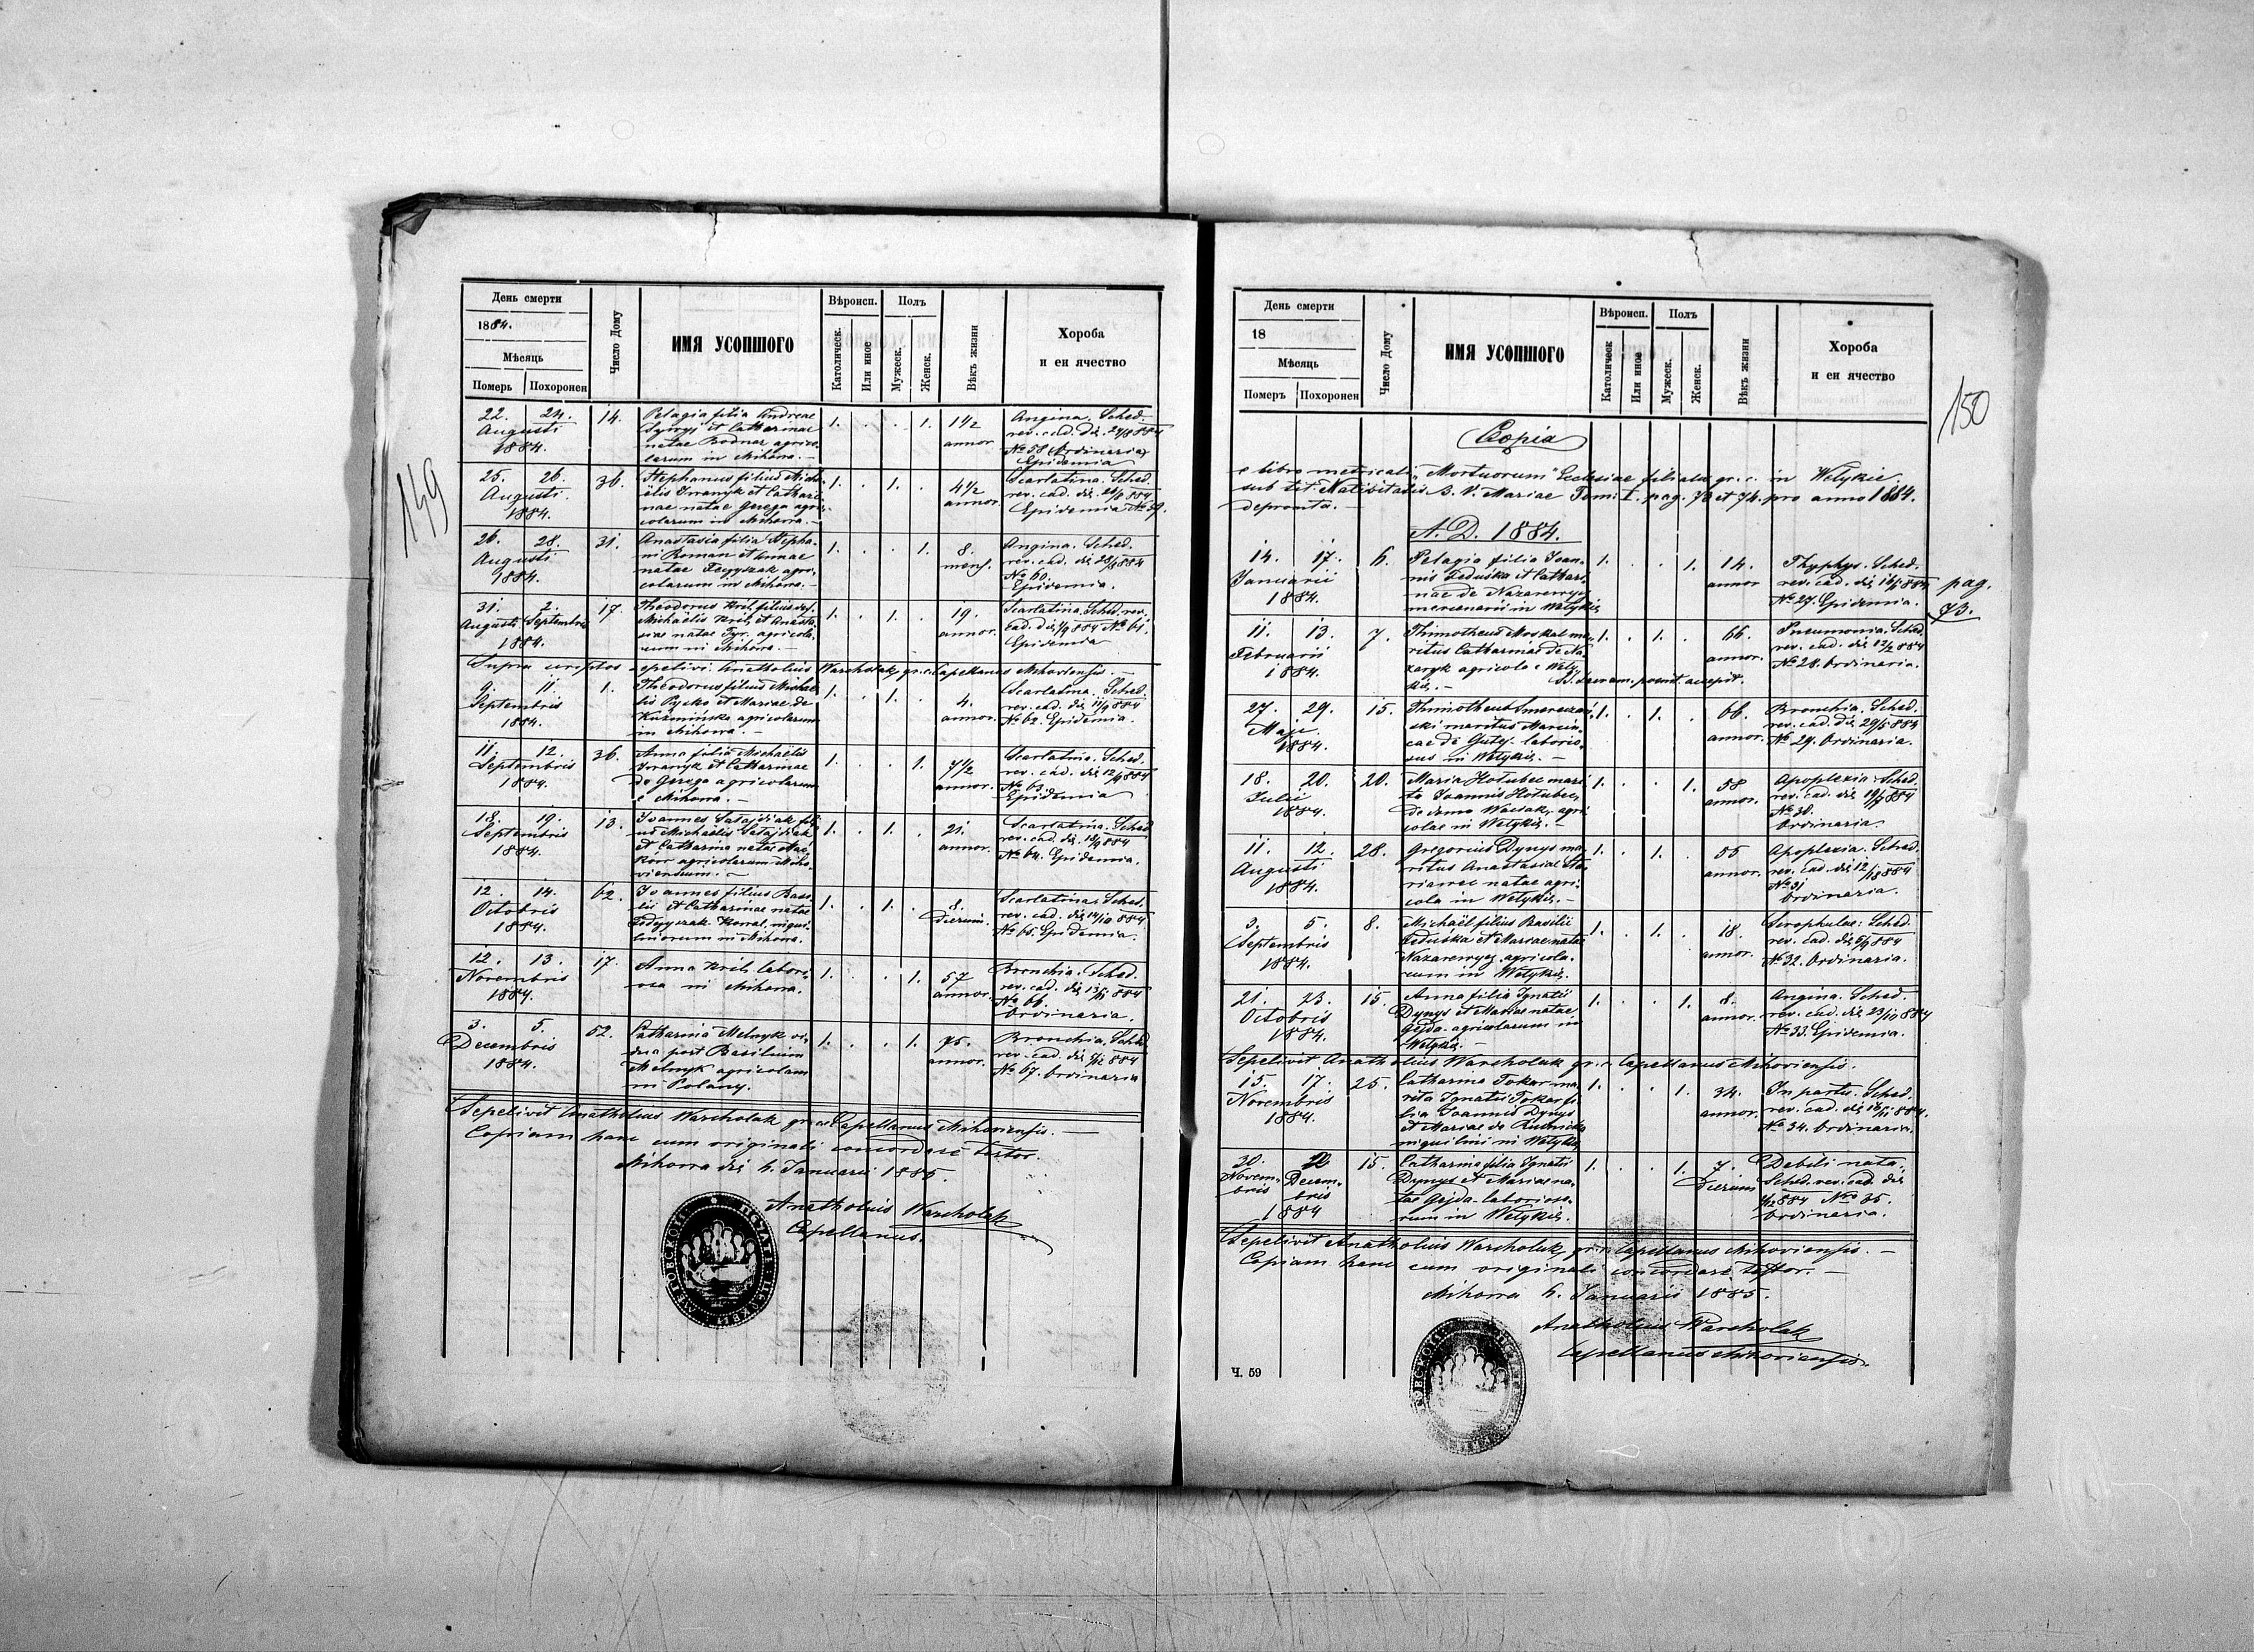 149
День смерти
1884.
Мѣсяць
Померъ Похоронен
Число Дому
ИМЯ УСОПШОГО
Вѣроисп.
Католическ.
Или иное
Полъ
Мужеск.
Женск.
Вѣкъ жизни
Хороба
и еи ячество
22. 24.
Augusti
1884.
14.
Pelagia filia Andreae
et Catharinae
natae Bodnar agrico-
larum in Mihowa.-
1. . . 1.
1½
annor
Angina. Sched.
rev. cad. dis 24/8 884
No 58 Ordinaria
Epidemia
25. 26.
Augusti.
1884.
36.
Stephanus filius Mich-
aëlis Iwanyk et Cathari-
nae natae Gerega agri-
colarum in Mihowa.-
1. . 1. .
4½
annor.
Scarlatina. Sched.
rev. cad. dis 26/8 884
Epidemia No 59.
26. 28.
Augusti
1884.
31.
Anastasia filia Stepha-
ni Roman et Annae
natae Fedyszak agri-
colarum in Mihowa.-
1. . . 1.
8.
mens.
Angina. Sched.
rev. cad. dis 28/8 884
No 60.
Epidemia.
31. 2.
Augusti Septembris
1884.
17.
Theodorus Kril, filius def.
Michaëlis Kril, et Anasta-
siae natae Tyr. agricola-
rum in Mihowa.-
1. . 1. .
19.
annor.
Scarlatina. Sched. rev.
cad. dis 1/9 884 No 61.
Epidemia
Supra scriptos sepelivi Anatholius Warcholak gr. c. Capellanus Mihoviensis.-
9. 11.
Septembris
1884.
1.
Theodorus filius Michaë-
lis Pycko et Mariae de
Kuźmińska agricolarum
in Mihowa.-
1. . 1. .
4.
annor.
Scarlatina. Sched.
rev. cad. dis 11/9 884
No 62. Epidemia.
11. 12.
Septembris
1884.
36.
Anna filia Michaëlis
Iwanyk et Catharinae
de Gerega agricolarum
e Mihowa.-
1. . . 1.
7½
annor.
Scarlatina. Sched.
rev. cad. dis 12/9 884
No 63.
Epidemia
18. 19.
Septembris
1884.
13.
Ioannes Sałajdiak fili-
us Michaëlis Sałajdiak
et Catharina natae
agricolarum Miho-
viensium.-
1. . 1. .
21.
annor.
Scarlatina. Sched.
rev. cad. dis 18/9 884
No 64. Epidemia.
12. 14.
Octobris
1884.
62.
Ioannes filius Basi-
lii et Catharinae natae
Fedyszak Kowal, inqui-
linorum in Mihowa.
1. . 1. .
8.
dierum.
Scarlatina. Sched.
rev. cad. dis 14/10 884
No 65. Epidemia.
12. 13.
Novembris
1884.
17.
Anna Kril. labori-
osa in Mihowa.
1. . . 1.
57
annor.
Bronchia. Sched.
rev. cad. dis 13/11 884
No 66.
Ordinaria.
3. 5.
Decembris
1884.
52.
Catharina Melnyk vi-
dua post Basilium
Melnyk agricolam
in Polany.
1. . . 1.
75.
annor.
Bronchia. Sched.
rev. cad. dis 5/12 884
No 67. Ordinaria
Sepelivit Anatholius Warcholak gr. c. Capellanus Mihoviensis.-
Copiam hanc cum originali concordare testor.
Mihowa dis 6. Januarii 1885.
Anatholius Warcholak
Capellanus.
150
День смерти
18
Мѣсяць
Померъ Похоронен
Число Дому
ИМЯ УСОПШОГО
Вѣроисп.
Католическ
Или иное
Полъ
Мужеск.
Женск.
Вѣкъ жизни
Хороба
и еи ячество
Copia
e libro metricali „Mortuorum" Ecclesiae filialis gr. c. in Wełykie
sub tit. Nativitatis B. V. Mariae Tomi I. pag. 73 et 74. pro anno 1884.
depromta.-
A. D. 1884.
14. 17.
Januarii
1884.
6.
Pelagia filia Ioan-
nis Feduśka et Cathari-
nae de Nazarewycz
mercenarii in Wełykie
1. . . 1.
14.
annor
Thyphys. Sched.
rev. cad. dis 18/1 884
No 27. Epidemia.
pag.
73.
11. 13.
Februarii
1884.
7.
Thimotheus Moskal ma-
ritus Catharinae de Na-
zaryk agricola e Wely-
kie.- SS. sacram. poenit. accepit.
1. . 1. .
66.
annor.
Pneumonia. Sched.
rev. cad. dis 12/2 884
No 28. Ordinaria.
27. 29.
Maji
1884.
15.
Thimotheus Smereczań-
ski maritus Marcin-
cae de Gutej. laborio-
sus in Wełykie.-
1. . 1. .
66.
annor.
Bronchia. Sched.
rev. cad. dis 29/5 884
No 29. Ordinaria.
18. 20.
Julii
1884.
20.
Maria Hołubec mari-
ta Ioannis Hołubec,
de domo agri-
colae in Wełykie.-
1. . . 1.
58
annor.
Apoplexia. Sched.
rev. cad. dis 19/7 884
No 30.
Ordinaria.
11. 12.
Augusti
1884.
28.
Gregorius Dynys ma-
ritus Anastasiae
natae agri-
cola in Wełykie.-
1. . 1. .
55
annor.
Apoplexia. Sched.
rev. cad. dis 12/8 884
No 31
Ordinaria.
3. 5.
Septembris
1884.
8.
Michaël filius Basilii
Feduśka et Mariae natae
Nazarewycz agricola-
rum in Wełykie.
1. . 1. .
18.
annor.
Scrophulae: Sched
rev. cad. dis 5/9 884
No 32. Ordinaria.
21. 23.
Octobris
1884.
15.
Anna filia Ignatii
Dynys et Mariae natae
Gejda agricolarum in
Wełykie.-
1. . . 1.
8.
annor.
Angina. Sched.
rev. cad. dis 23/10 884
No 33. Epidemia.
Sepelivit Anatholius Warcholak gr. c. Capellanus Mihoviensis.
15. 17.
Novembris
1884.
25.
Catharina Tokar ma-
rita Ignatii Tokar fi-
lia Ioannis Dynys
et Mariae de Rudnicka
inquilini in Wełykie
1. . . 1.
34.
annor.
In partu. Sched.
rev. cad. dis 16/11 884.
No 34. Ordinaria.
30.
Novem-
bris
Decem-
bris
1884
15.
Catharina filia Ignatii
Dynys et Mariae na-
tae Gejda laborioso-
rum in Wełykie.
1. . . 1.
7.
dierum
Debili nata.
Sched. rev. cad. dis
1/12 884 No 35.
Ordinaria.
Sepelivit Anatholius Warcholak gr. c. Capellanus Mihoviensis.-
Copiam hanc cum originali concordare testor.-
Mihowa 6. Januarii 1885.
Anatholius Warcholak
Capellanus Mihoviensis.
Ч. 59